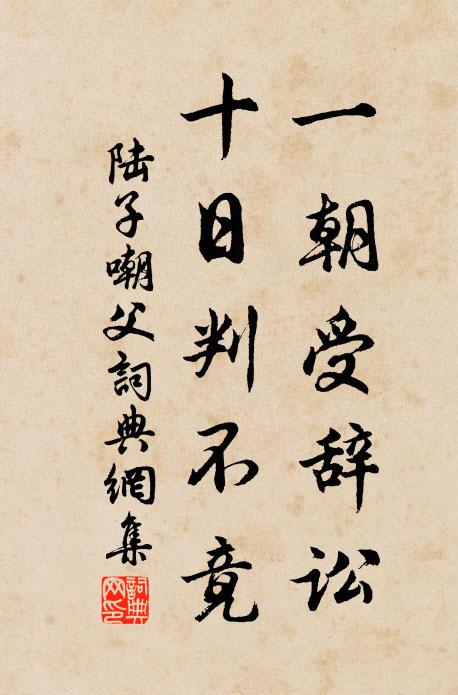 一朝受辞讼
十日判不竟
陆子嘲父詞典網集
詞典網印